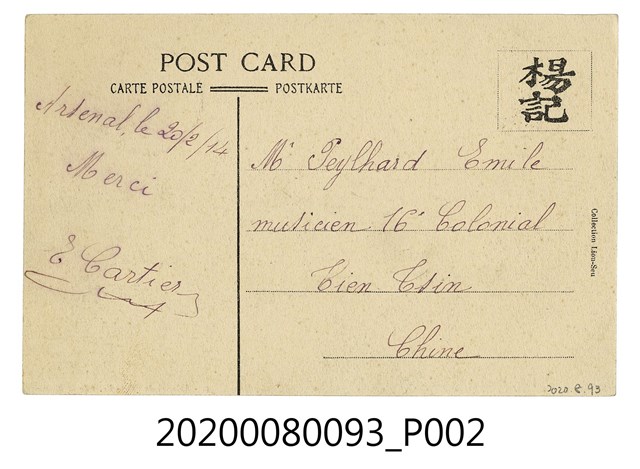 POST CARD
CARTE POSTALE POSTKARTE
楊記
Arsenal, le 20/2/14
Merci
E Cartier
Mr Peylhard Emile
musicien 16e Colonial
Tien Tsin
Chine
Collection Liou-Seu
2020.8.93
20200080093_P002